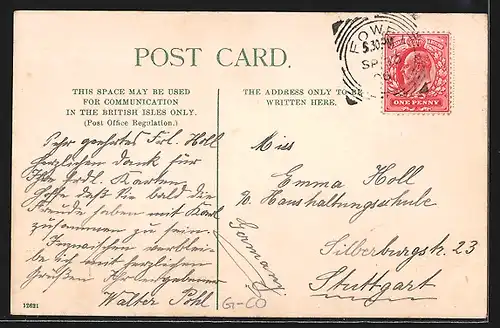 POST CARD.
THIS SPACE MAY BE USED
FOR COMMUNICATION
IN THE BRITISH ISLES ONLY.
(Post Office Regulation.)
Sehr geehrtes Frl. Holl
herzlichen Dank für
Ihre frdl. Karten.
Hoffe daß Sie bald die
Freude haben mit Karl
zusammen zu sein.
Inzwischen verbleibe
be ich mit herzlichen
Grüßen Ihr ergebener
Walter Pohl
12631
THE ADDRESS ONLY TO BE
WRITTEN HERE.
FOWEY
5.30PM
SP
ONE PENNY
Miss
Emma Holl
Haushaltungsschule
Silberburgstr. 23
Stuttgart
Germany
G-CO